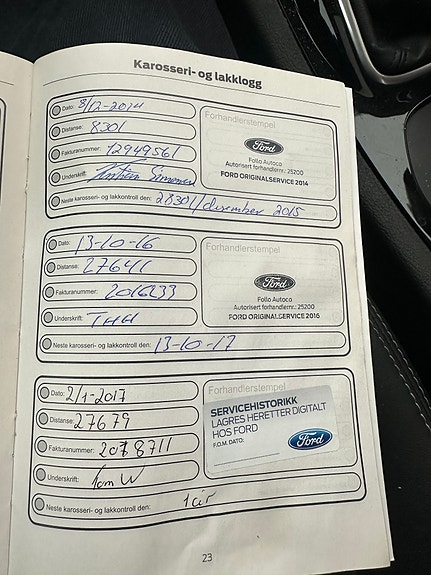 Karosseri- og lakklogg
Dato: 8/12-2014
Distanse: 8301
Fakturanummer: 12949561
Underskrift:
Neste karosseri- og lakkontroll den: 28301/desember 2015
Forhandlerstempel
Ford
Follo Autoco
Autorisert forhandlernr.: 25200
FORD ORIGINALSERVICE 2014
Dato: 13-10-16
Distanse: 27641
Fakturanummer: 2016633
Underskrift: THH
Neste karosseri- og lakkontroll den: 13-10-17
Forhandlerstempel
Ford
Follo Autoco
Autorisert forhandlernr.: 25200
FORD ORIGINALSERVICE 2016
Dato: 2/1-2017
Distanse: 27679
Fakturanummer: 2078711
Underskrift: Tom W
Neste karosseri- og lakkontroll den: 1 år
Forhandlerstempel
SERVICEHISTORIKK
LAGRES HERETTER DIGITALT
HOS FORD
F.O.M. DATO:
Ford
23